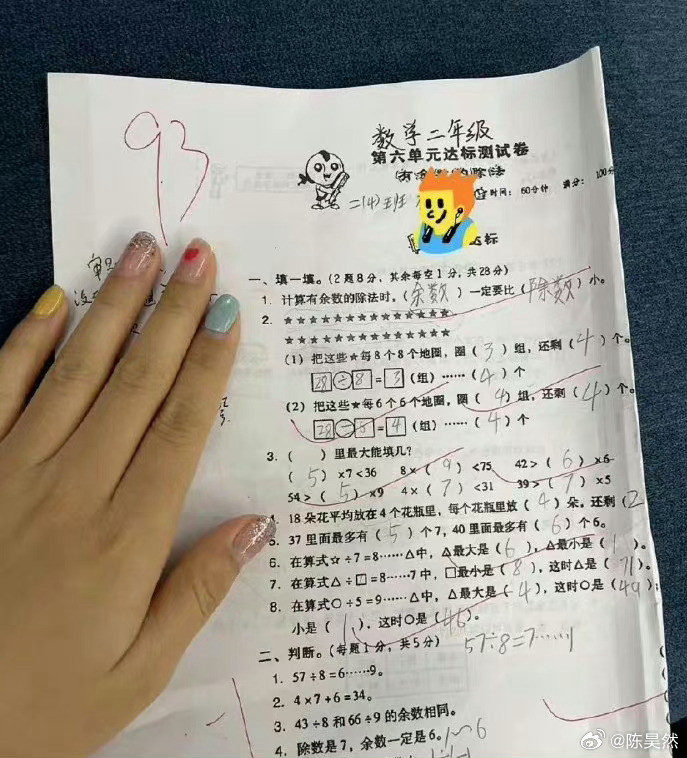 93
数学二年级
第六单元达标测试卷
二(4)班
时间：60分钟 满分：100分
达标
一、填一填。(2题8分，其余每空1分，共28分)
1. 计算有余数的除法时，(余数)一定要比(除数)小。
2. ★★★★★★★★★★★★★★
★★★★★★★★★★★★★★
(1) 把这些★每8个8个地圈，圈(3)组，还剩(4)个。
28÷8=3(组)……(4)个
(2) 把这些★每6个6个地圈，圈(4)组，还剩(4)个。
28÷6=4(组)……(4)个
3. ( )里最大能填几？
(5)×7<36 8×(9)<75 42>(6)×6
54>(5)×9 4×(7)<31 39>(7)×5
4. 18朵花平均放在4个花瓶里，每个花瓶里放(4)朵，还剩(2
5. 37里面最多有(5)个7，40里面最多有(6)个6。
6. 在算式☆÷7=8……△中，△最大是(6)，△最小是(1)。
7. 在算式△÷□=8……7中，□最小是(8)，这时△是(71)。
8. 在算式○÷5=9……△中，△最大是(4)，这时○是(49)；
小是(1)，这时○是(46)。
二、判断。(每题1分，共5分)
57÷8=7……1
1. 57÷8=6……9。
2. 4×7+6=34。
3. 43÷8和66÷9的余数相同。
-1
4. 除数是7，余数一定是6。1~6
@陈昊然